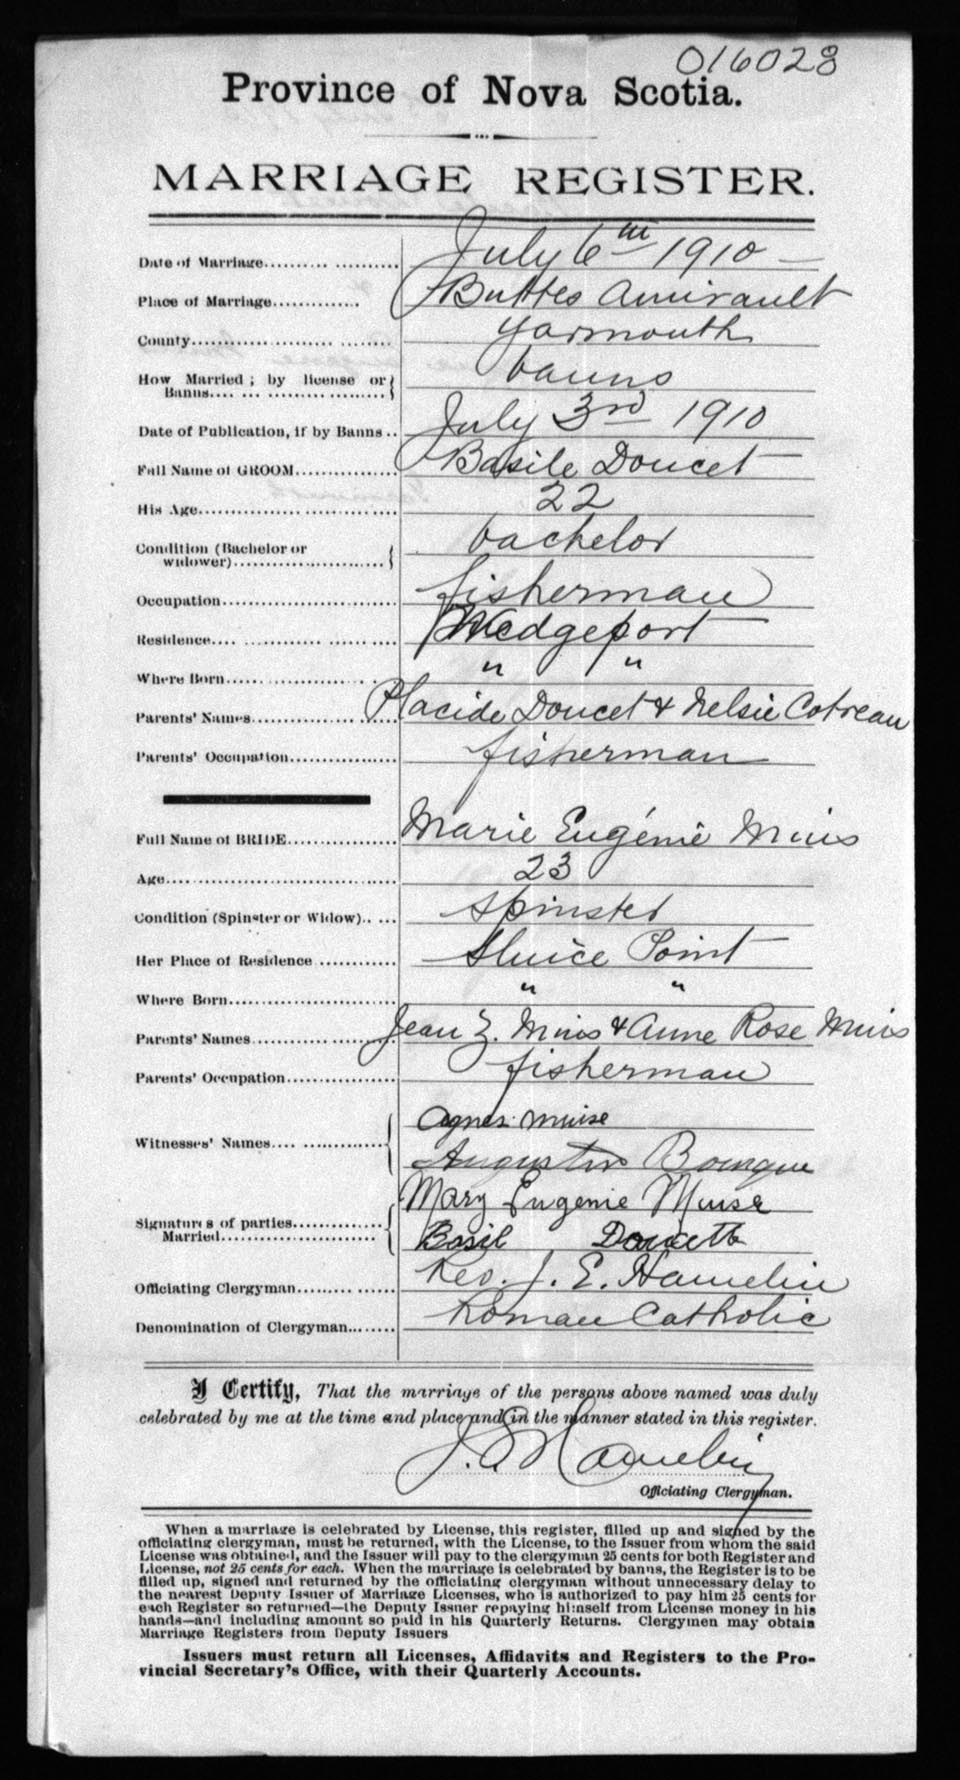 016028
Province of Nova Scotia.
MARRIAGE REGISTER.
Date of Marriage........................ July 6th 1910
Place of Marriage............. Buttes Amirault
County........................ Yarmouth
How Married; by license or Banns........................ banns
Date of Publication, if by Banns.. July 3rd 1910
Full Name of GROOM............... Basile Doucet
His Age........................ 22
Condition (Bachelor or widower)........................ bachelor
Occupation........................ fisherman
Residence........................ Wedgeport
Where Born........................ " "
Parents' Names........................ Placide Doucet & Nelsie Cotreau
Parents' Occupation................. fisherman
Full Name of BRIDE................ Marie Eugénie Mius
Age........................ 23
Condition (Spinster or Widow)...... Spinster
Her Place of Residence............ Sluice Point
Where Born........................ " "
Parents' Names........................ Jean Z. Mius & Anne Rose Mius
Parents' Occupation................. fisherman
Witnesses' Names................... Agnes Muise
Augustin Bourque
Signatures of parties Married........................ Mary Eugenie Muise
Basil Doucette
Officiating Clergyman............... Rev. J. E. Hamelin
Denomination of Clergyman......... Roman Catholic
I Certify, That the marriage of the persons above named was duly
celebrated by me at the time and place and in the manner stated in this register.
J. E. Hamelin
Officiating Clergyman.
When a marriage is celebrated by License, this register, filled up and signed by the
officiating clergyman, must be returned, with the License, to the Issuer from whom the said
License was obtained, and the Issuer will pay to the clergyman 25 cents for both Register and
License, not 25 cents for each. When the marriage is celebrated by banns, the Register is to be
filled up, signed and returned by the officiating clergyman without unnecessary delay to
the nearest Deputy Issuer of Marriage Licenses, who is authorized to pay him 25 cents for
each Register so returned—the Deputy Issuer repaying himself from License money in his
hands—and including amount so paid in his Quarterly Returns. Clergymen may obtain
Marriage Registers from Deputy Issuers
Issuers must return all Licenses, Affidavits and Registers to the Pro-
vincial Secretary's Office, with their Quarterly Accounts.